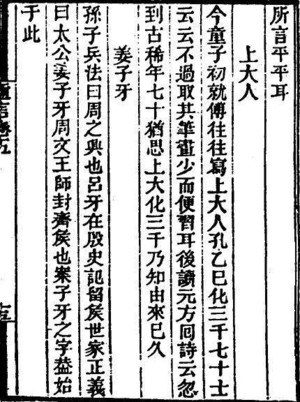 所言平平耳
上大人
今童子初就傅往往寫上大人孔乙巳化三千七十士
云云不過取其筆畫少而便習耳後讀元方回詩云忽
到古稀年七十猶思上大化三千乃知由來已久
姜子牙
孫子兵法曰周之興也呂牙在殷史記留侯世家正義
曰太公姜子牙周文王師封齊侯也案子牙之字葢始
于此